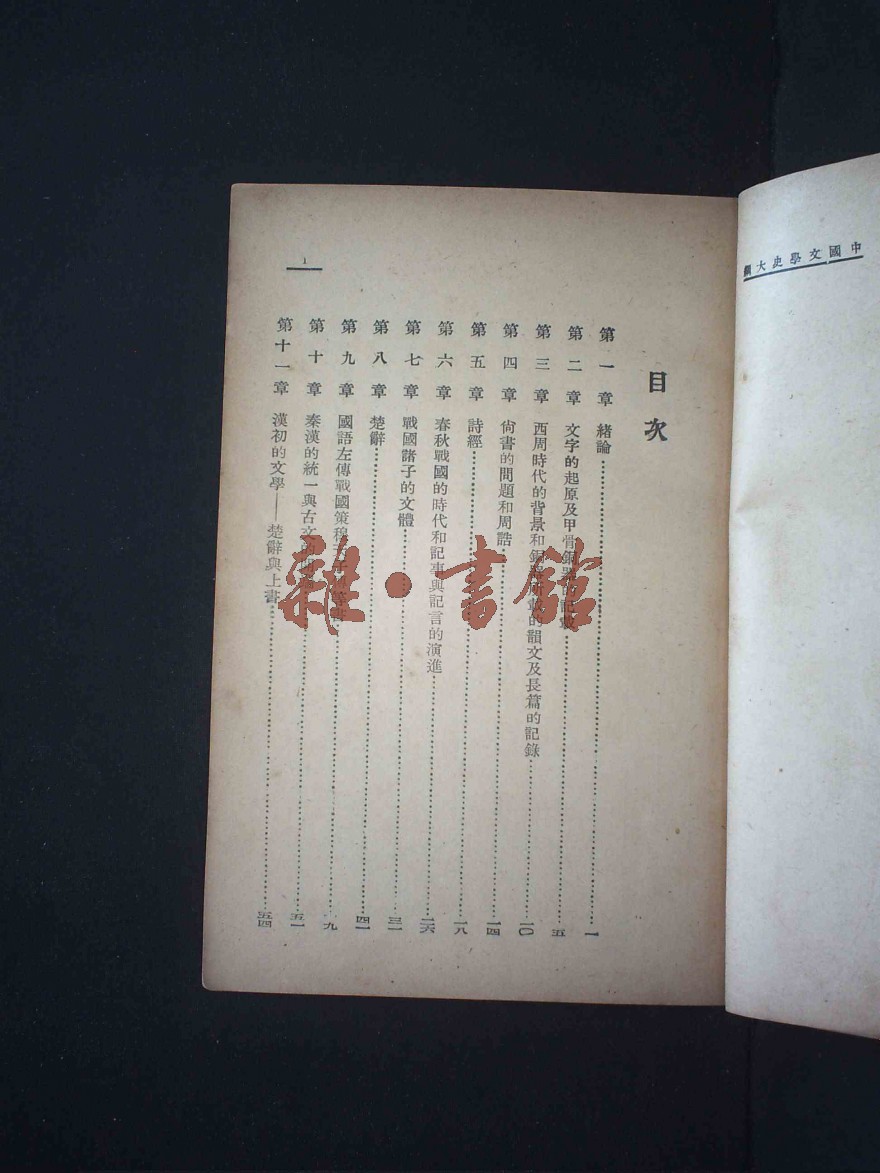 中國文學史大綱
目次
第一章 緒論 一
第二章 文字的起原及甲骨銅器的記載 五
第三章 西周時代的背景和銅器所載的韻文及長篇的記錄 一〇
第四章 尙書的問題和周誥 一四
第五章 詩經 一八
第六章 春秋戰國的時代和記事與記言的演進 二六
第七章 戰國諸子的文體 三一
第八章 楚辭 四一
第九章 國語左傳戰國策穆天子傳等書 九
第十章 秦漢的統一與古文的 五一
第十一章 漢初的文學——楚辭與上書 五四
1
雜·書館